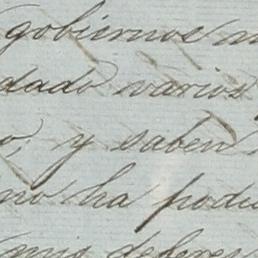 gobiernos
dado varios
o, y saben
no ha podi
mis deberes